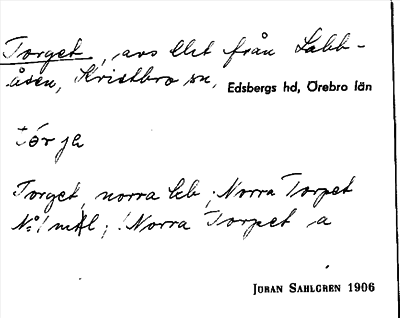 Torget, avs Ulet från Labb-
åsen, Kristbro sn, Edsbergs hd, Örebro län
tórja
Torget, norra leb; Norra Torpet
No 1 mtl; ! Norra Torpet a
JÖRAN SAHLGREN 1906